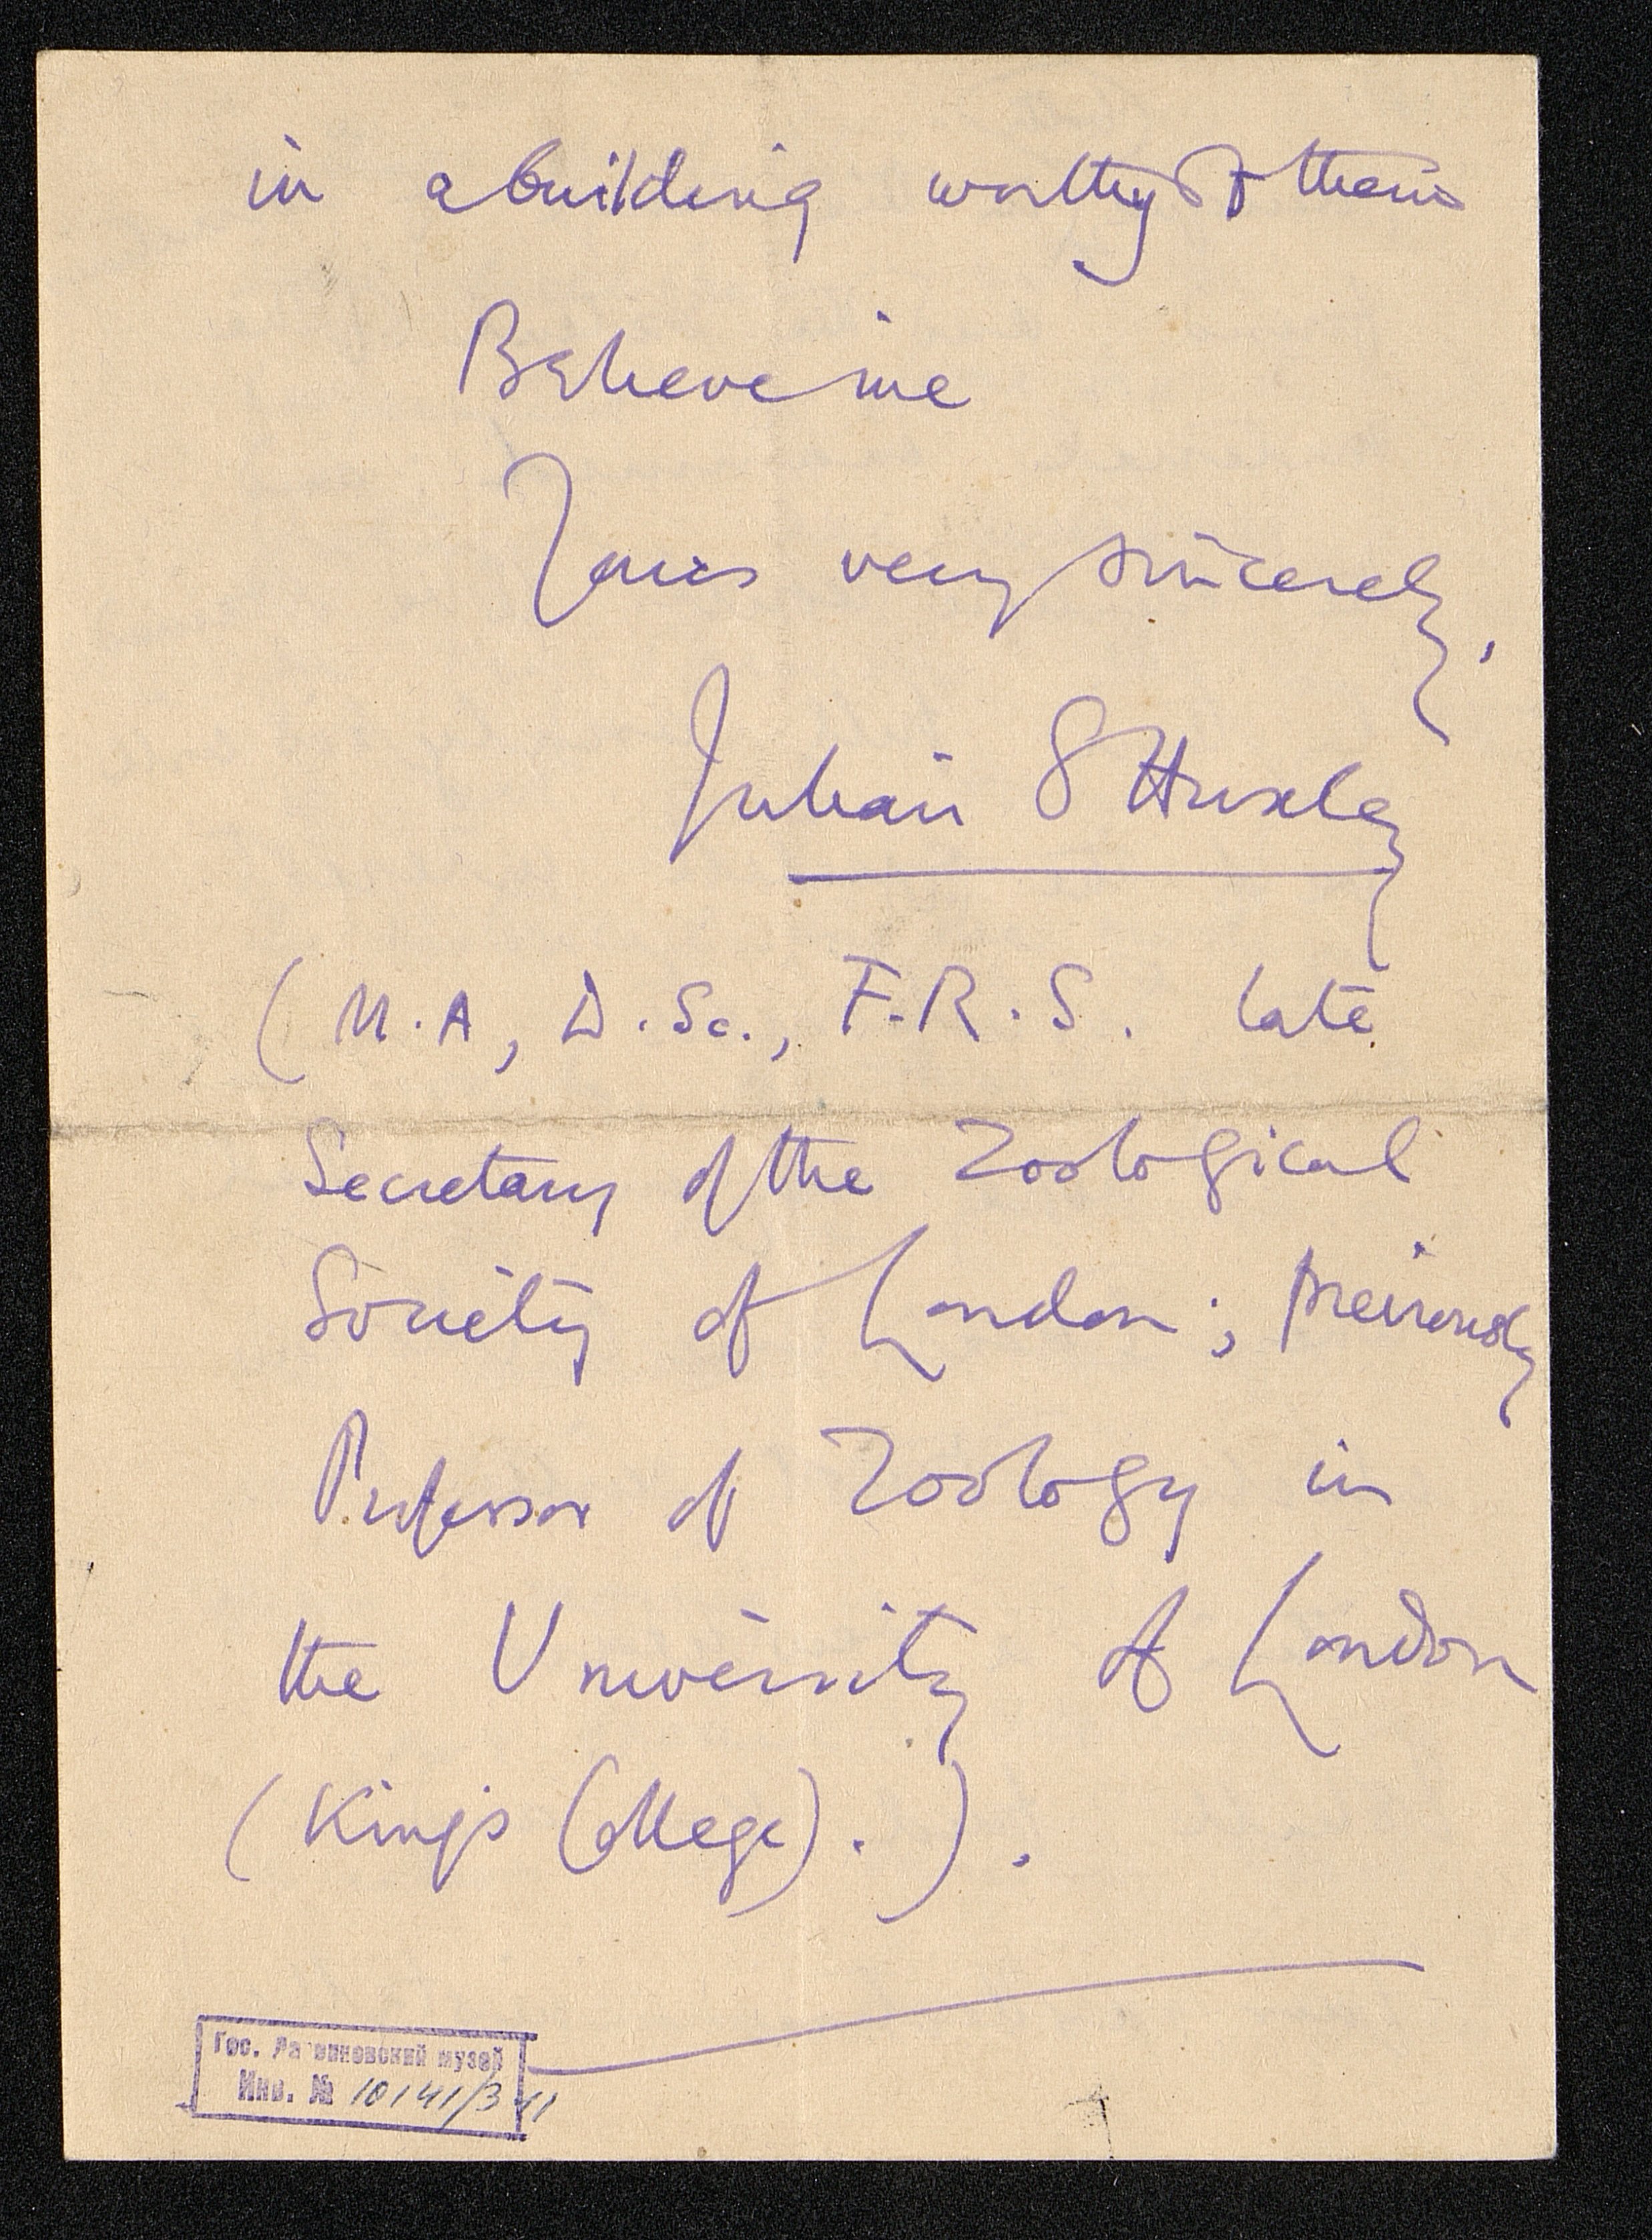 in a building worthy of them
Believe me
Yours very sincerely,
Julian S Huxley
(M.A, D.Sc., F.R.S. late
Secretary of the Zoological
Society of London; previously
Professor of Zoology in
the University of London
(King's College).).
Гос. Дарвиновский музей
Инв. № 10141/341